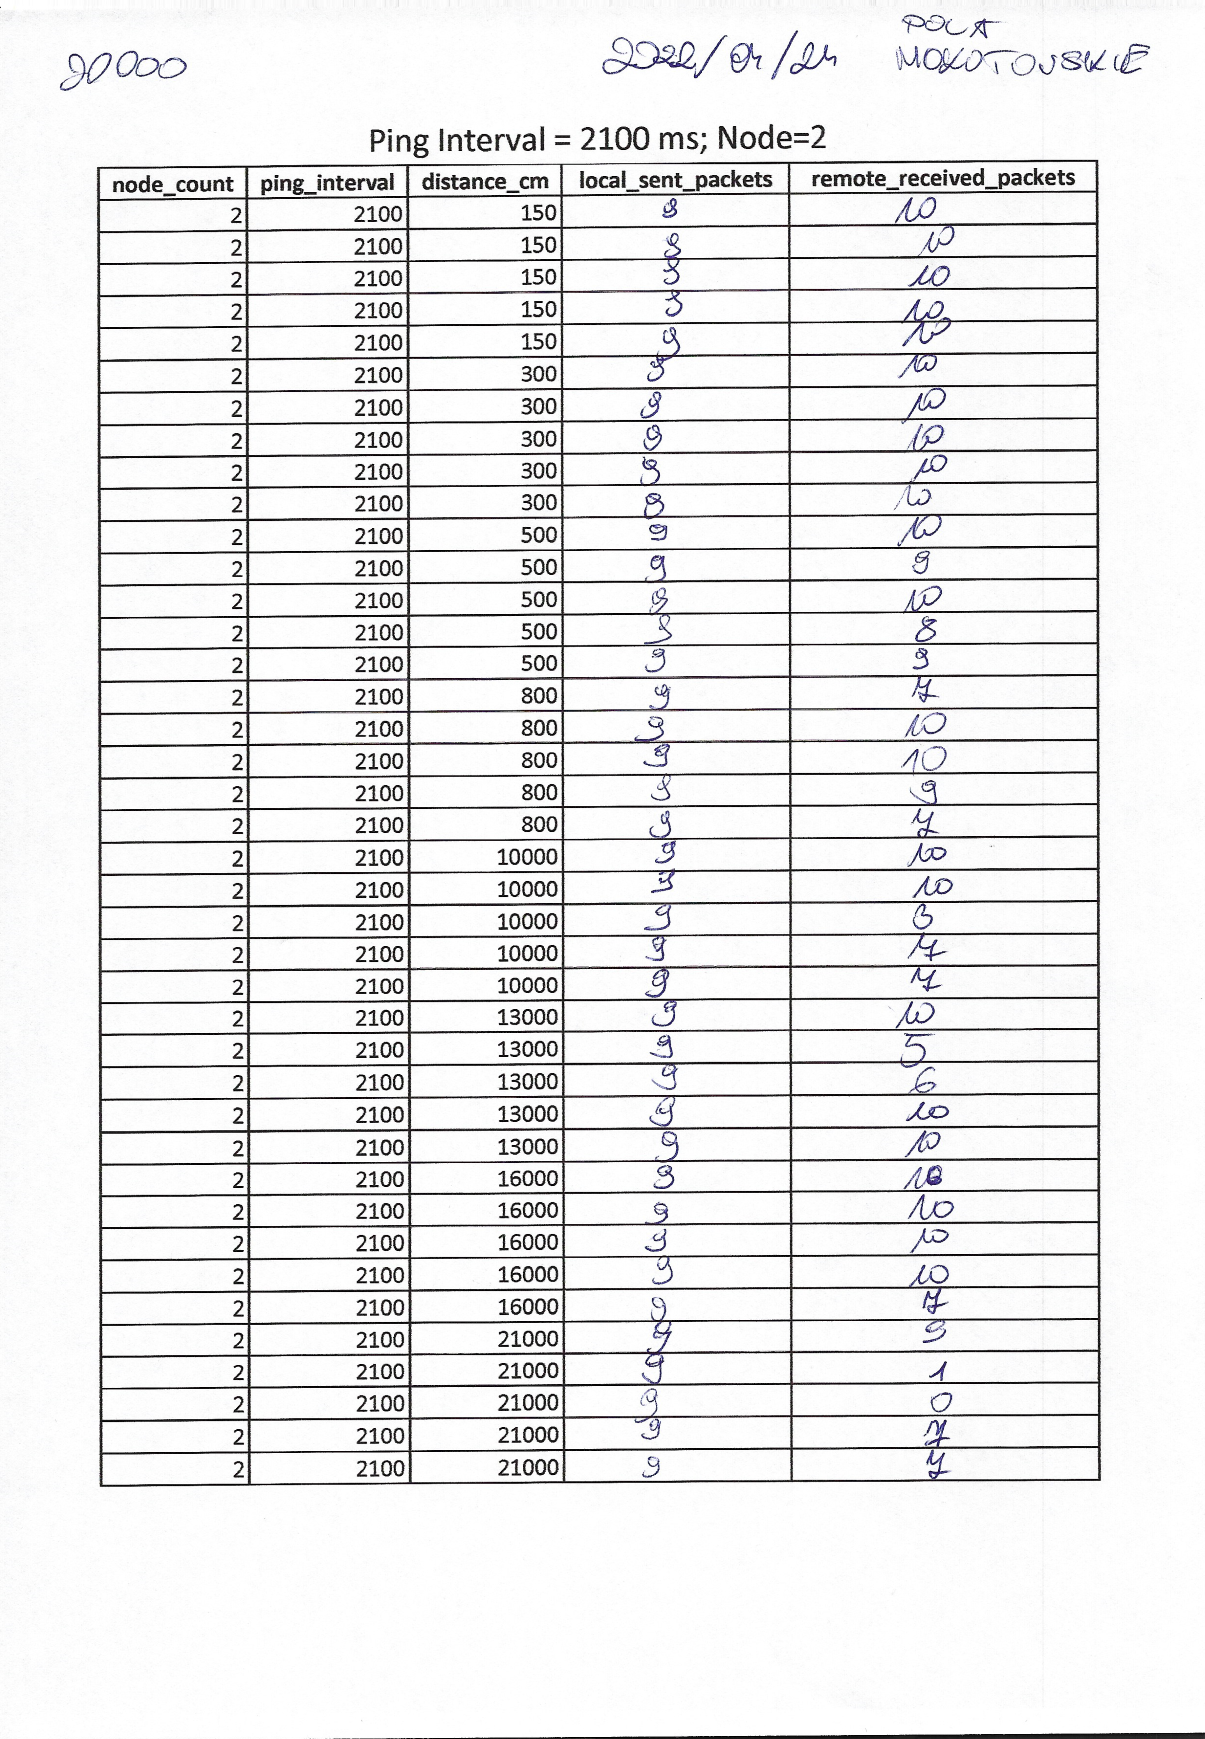 20000 2022/04/24 POLA
MOKOTOWSKIE
Ping Interval = 2100 ms; Node=2
node_count ping_interval distance_cm local_sent_packets remote_received_packets
2 2100 150 9 10
2 2100 150 9 10
2 2100 150 9 10
2 2100 150 9 10
2 2100 150 9 10
2 2100 300 9 10
2 2100 300 9 10
2 2100 300 9 10
2 2100 300 9 10
2 2100 300 9 10
2 2100 500 9 10
2 2100 500 9 9
2 2100 500 9 10
2 2100 500 9 8
2 2100 500 9 9
2 2100 800 9 7
2 2100 800 9 10
2 2100 800 9 10
2 2100 800 9 9
2 2100 800 9 7
2 2100 10000 9 10
2 2100 10000 9 10
2 2100 10000 9
2 2100 10000 9 7
2 2100 10000 9 7
2 2100 13000 9 10
2 2100 13000 9 5
2 2100 13000 9 6
2 2100 13000 9 10
2 2100 13000 9 10
2 2100 16000 9 10
2 2100 16000 9 10
2 2100 16000 9 10
2 2100 16000 9 10
2 2100 16000 9 7
2 2100 21000 9 9
2 2100 21000 9 1
2 2100 21000 9 0
2 2100 21000 9 7
2 2100 21000 9 7